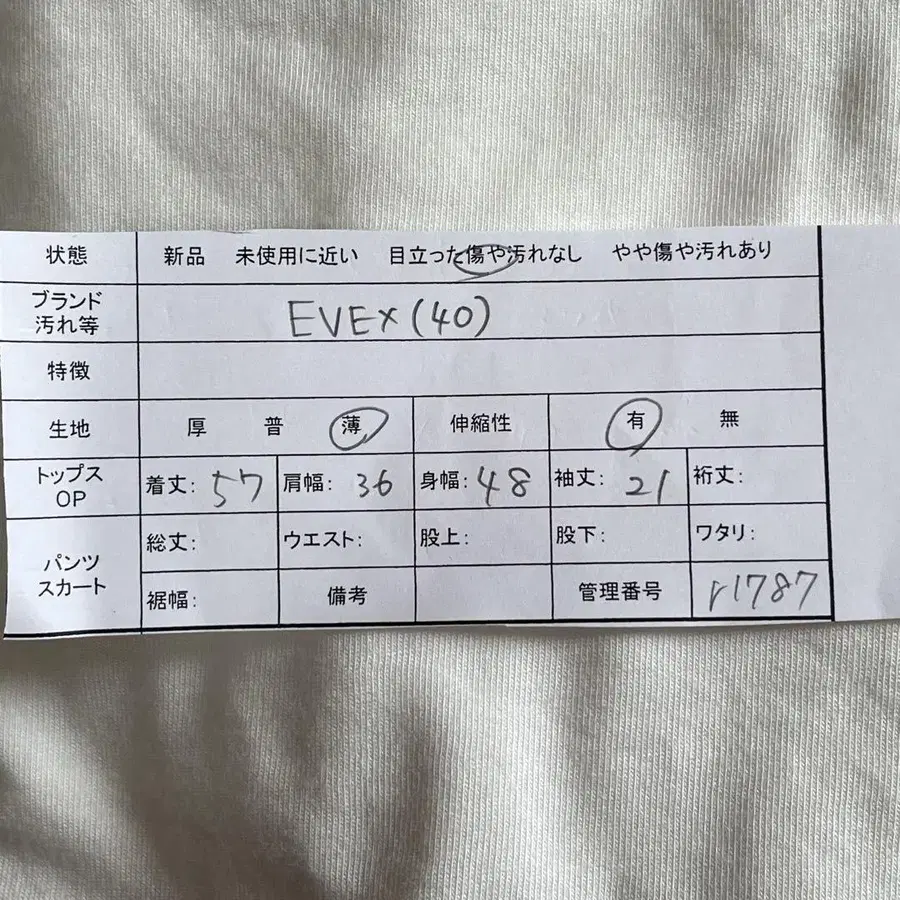 状態 新品 未使用に近い 目立った傷や汚れなし やや傷や汚れあり
ブランド
汚れ等
EVEX (40)
特徴
生地 厚 普 薄 伸縮性 有 無
トップス
OP
着丈: 57 肩幅: 36 身幅: 48 袖丈: 21 裄丈:
パンツ
スカート
総丈: ウエスト: 股上: 股下: ワタリ:
裾幅: 備考 管理番号 r1787